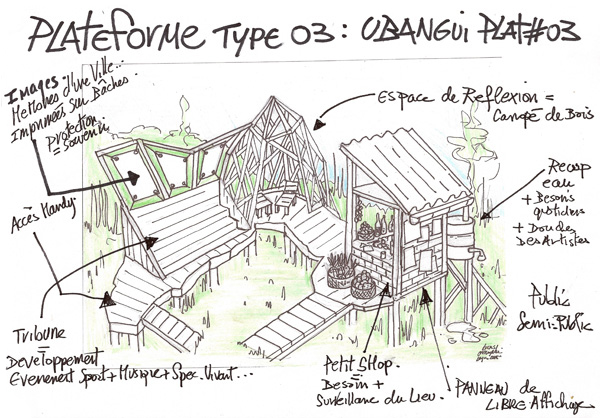 PLATEFORME TYPE 03 : UBANGUI PLAT#03
Images.
Mémoires d'une Ville...
Imprimées sur Bâches.
Protection
= Souvenir
Accès Handy
Tribune
=
Développement
Evenement Sport + Musique + Spec. Vivant...
ESPACE de Reflexion =
Canopé de Bois
Recup
eau
+ Besoins
quotidiens
+ Douches
Des Artistes
Public
Semi-Public
Petit SHop
=
Besoin +
Surveillance du Lieu.
PANNEAU de
LIBRE Affichage